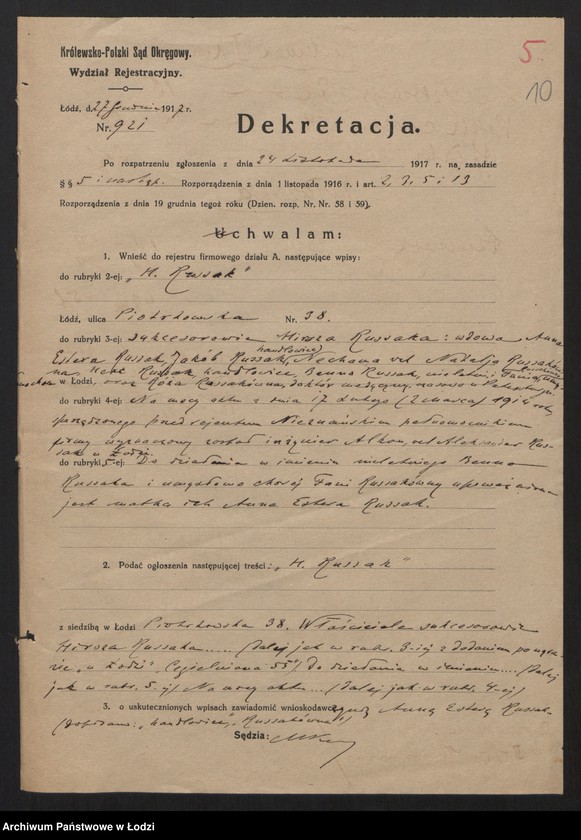 5.
10
Królewsko-Polski Sąd Okręgowy.
Wydział Rejestracyjny.
Łódź, d. 27 Grudnia 1917 r.
Nr. 921
Dekretacja.
Po rozpatrzeniu zgłoszenia z dnia 24 Listopada 1917 r. na zasadzie
§ § 5 i następ. Rozporządzenia z dnia 1 listopada 1916 r. i art. 2, 3, 5 i 13
Rozporządzenia z dnia 19 grudnia tegoż roku (Dzien. rozp. Nr. Nr. 58 i 59).
Uchwalam:
1. Wnieść do rejestru firmowego działu A. następujące wpisy:
do rubryki 2-ej: „H. Russak"
Łódź, ulica Piotrkowska Nr. 38.
do rubryki 3-ej: sukcesorowie Hirsza Russaka: wdowa Anna
handlowiec
Estera Russak, Jakób Russak, Nechama vel Natalja
Russak handlowiec, Benno Russak, nieletni
w Łodzi, oraz Róża Russakówna, doktór medycyny,
do rubryki 4-ej: Na mocy aktu z dnia 17 Lutego (2 marca) 1914 roku
sporządzonego przed rejentem pełnomocnikiem
firmy wyznaczony został inżynier vel Aleksander Rus-
sak w Łodzi.
do rubryki 5-ej: Do działania w imieniu nieletniego Benno
Russaka i umysłowo chorej Fani Russakówny upoważniona
jest matka ich Anna Estera Russak.
2. Podać ogłoszenia następującej treści: „H. Russak"
z siedzibą w Łodzi Piotrkowska 38. Właściciele sukcesorowie
Hirsza Russaka..... (dalej jak w rubr. 3-iej z dodaniem po wyra-
zie „w Łodzi" Cegielniana 55) Do działania w imieniu.... (dalej
jak w rubr. 5-ej) Na mocy aktu... (dalej jak w rubr. 4-ej)
3. o uskutecznionych wpisach zawiadomić wnioskodawczynię Annę Esterę Russak.
„handlowiec", „Russakówna")
Sędzia:
Archiwum Państwowe w Łodzi